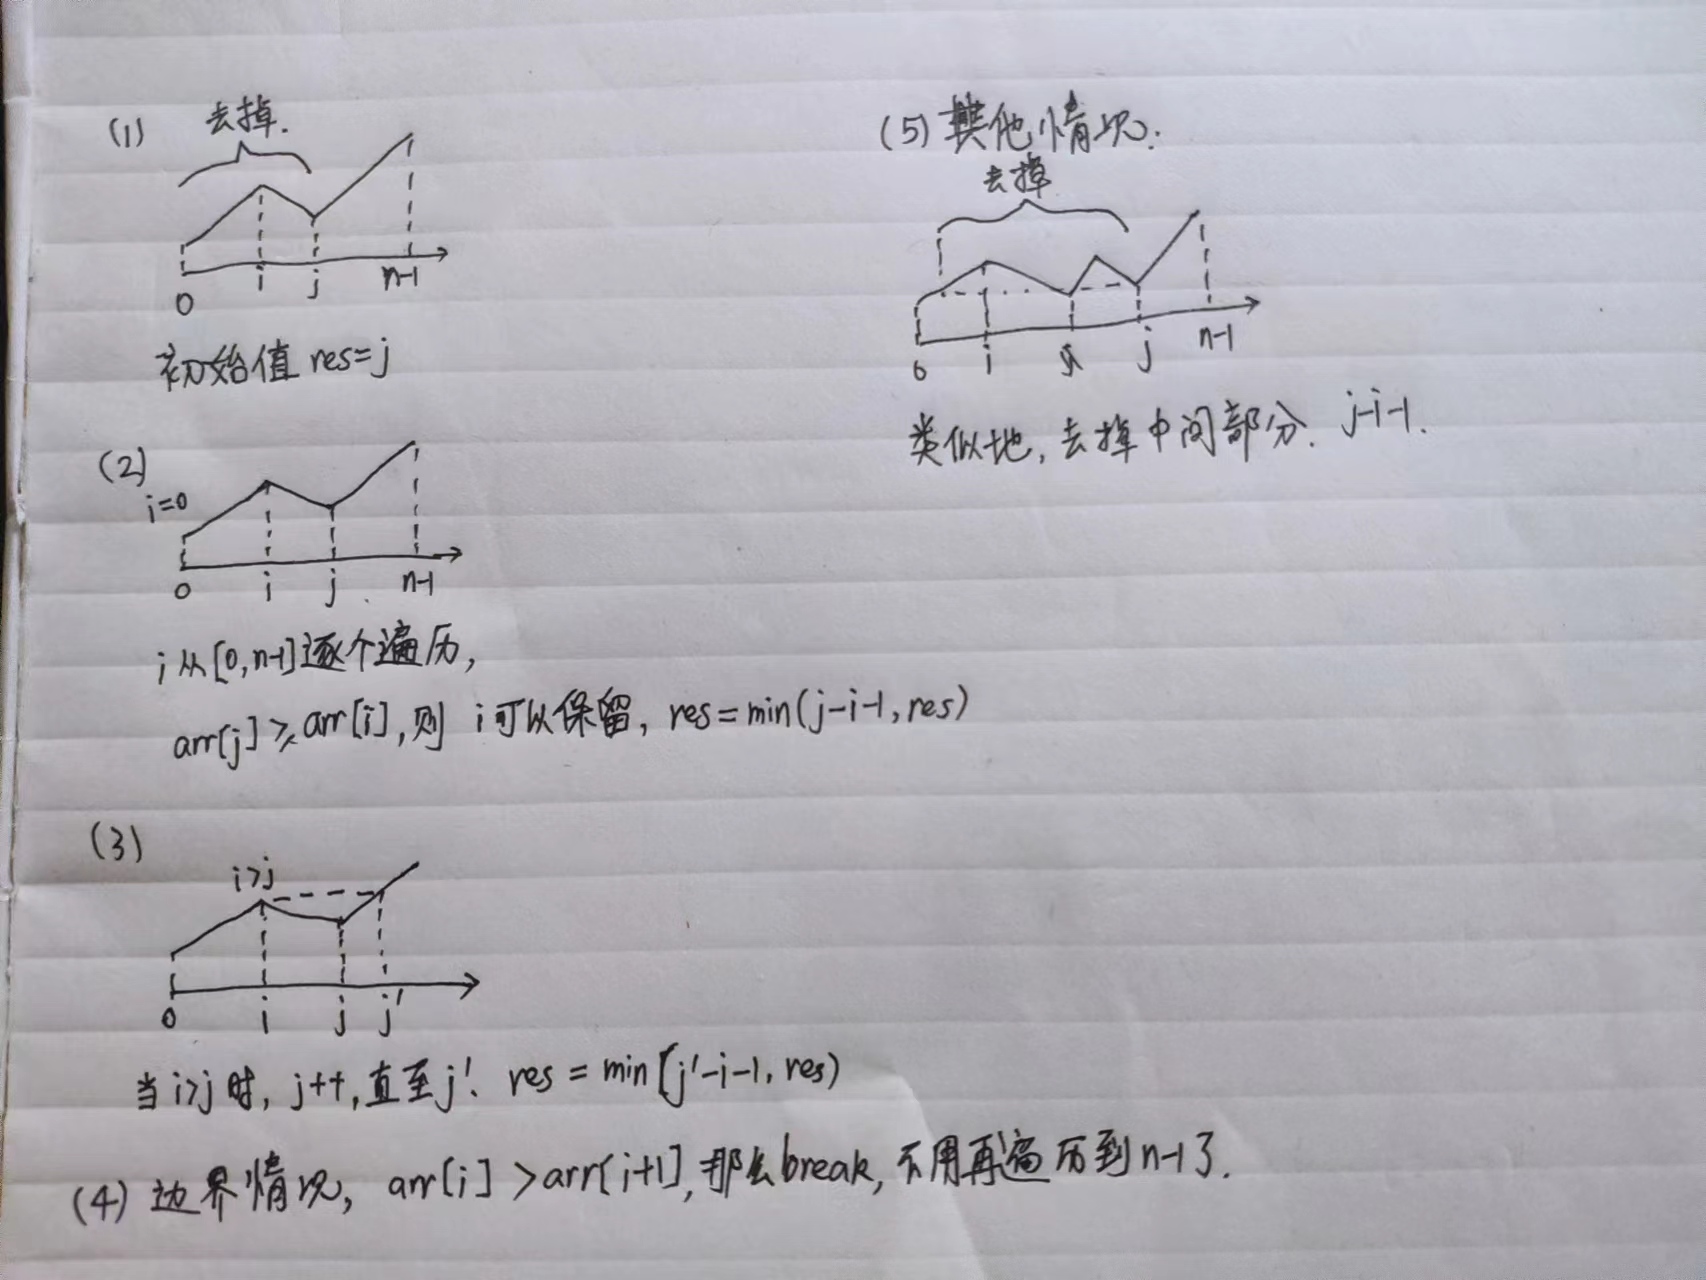 (1) 去掉.
0 i j n-1
初始值 res=j
(2)
i=0
0 i j n-1
i从[0,n-1]逐个遍历,
arr[j]≥arr[i],则 i可以保留, res=min(j-i-1,res)
(3)
i>j
0 i j j'
当i>j时, j++,直至j'. res=min[j'-i-1,res)
(4) 边界情况, arr[i]>arr[i+1],那么break,不用再遍历到n-1了.
(5) 其他情况:
去掉
0 i j n-1
类似地,去掉中间部分. j-i-1.